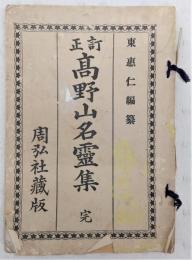 東惠仁編纂
訂正
高野山名靈集
完
周弘社藏版